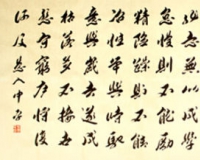 志無以成學
慢則不能勵
精險躁則不能
冶性年與時馳
意與歲去遂成
枯落多不接世
悲守窮廬將復
何及